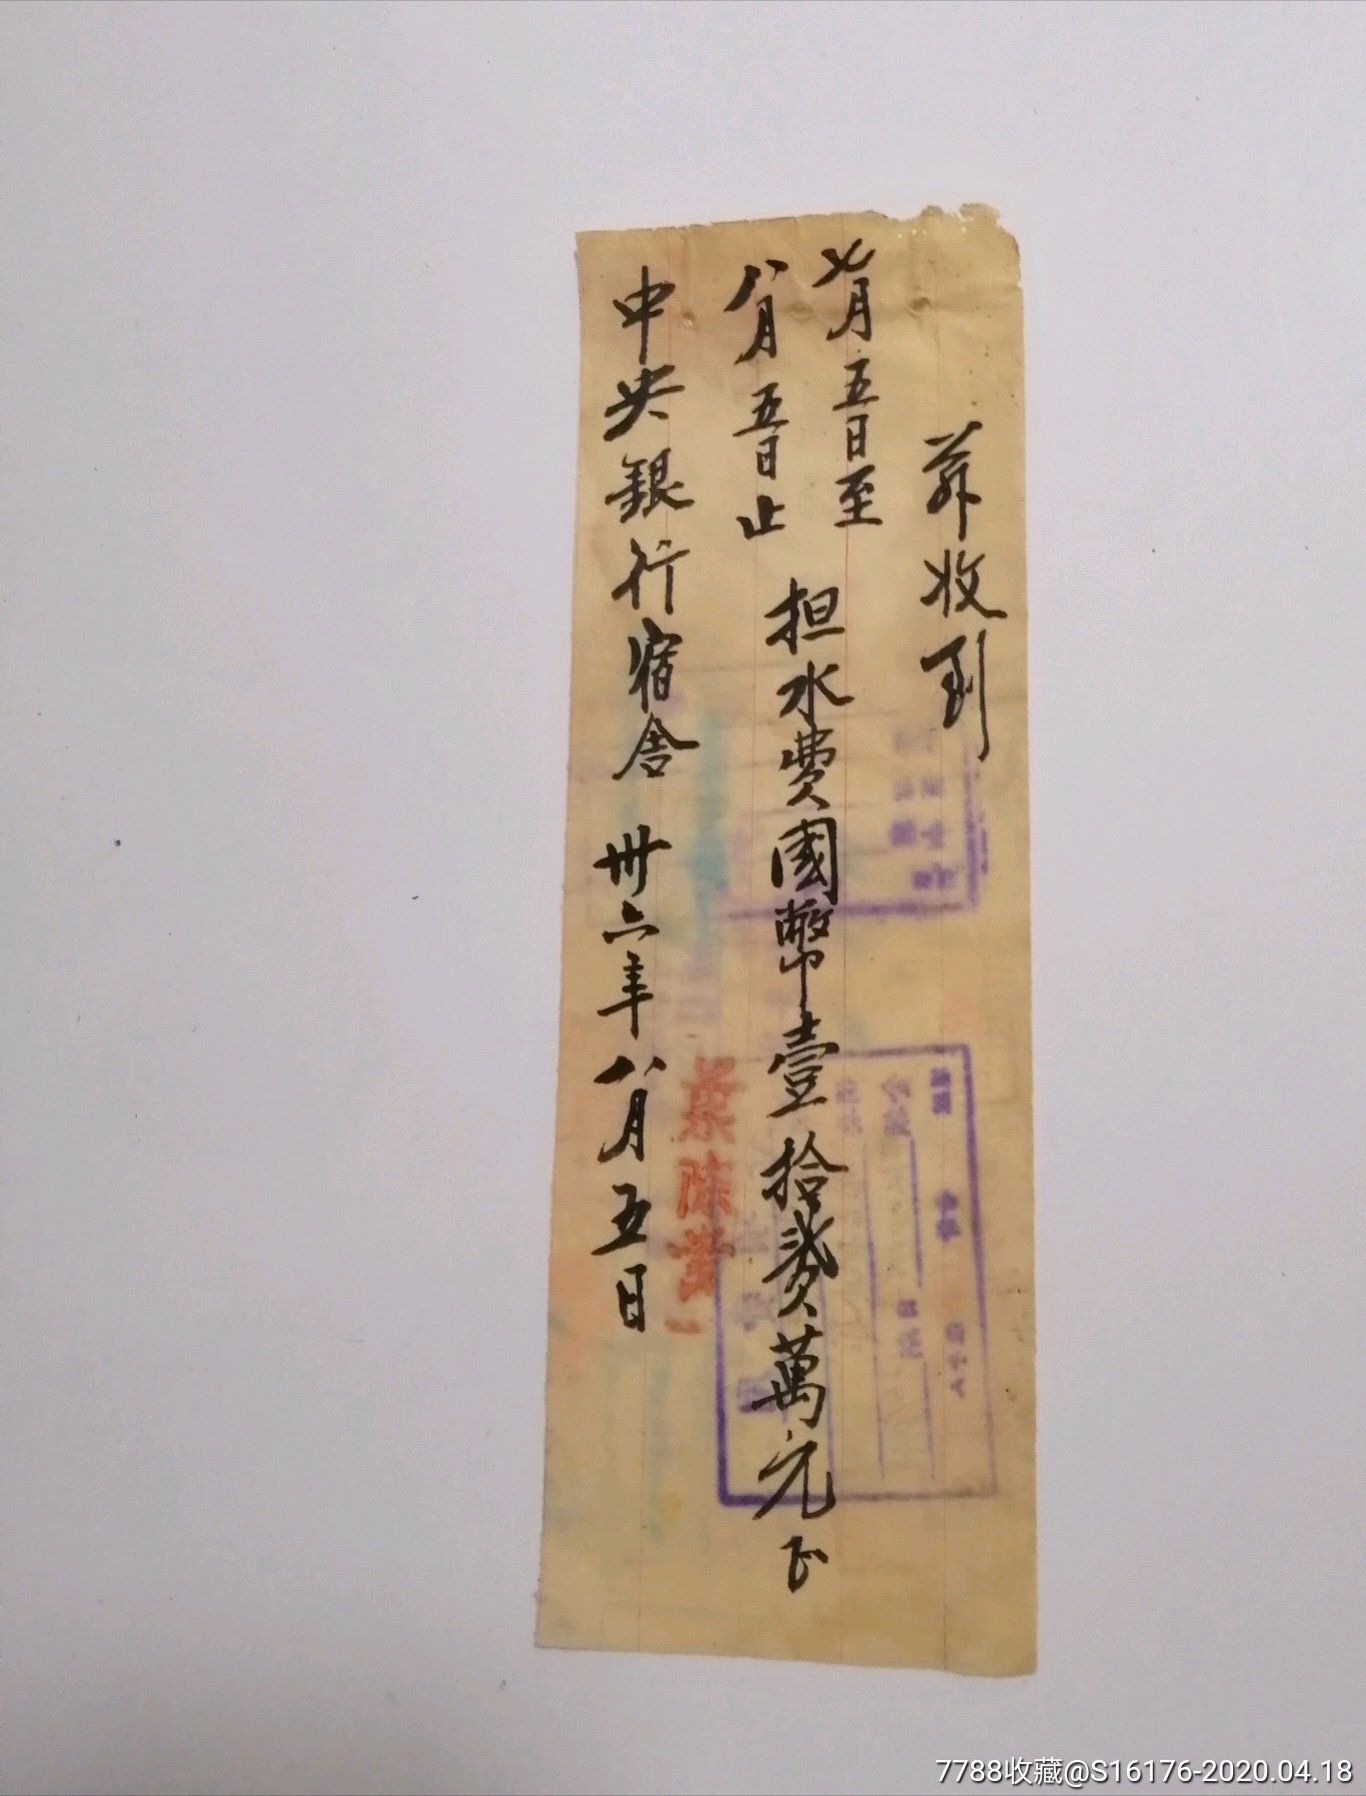 茲收到
七月五日至
八月五日止
担水費國幣壹拾貳萬元正
中央銀行宿舍 卅六年八月五日
7788收藏@S16176-2020.04.18